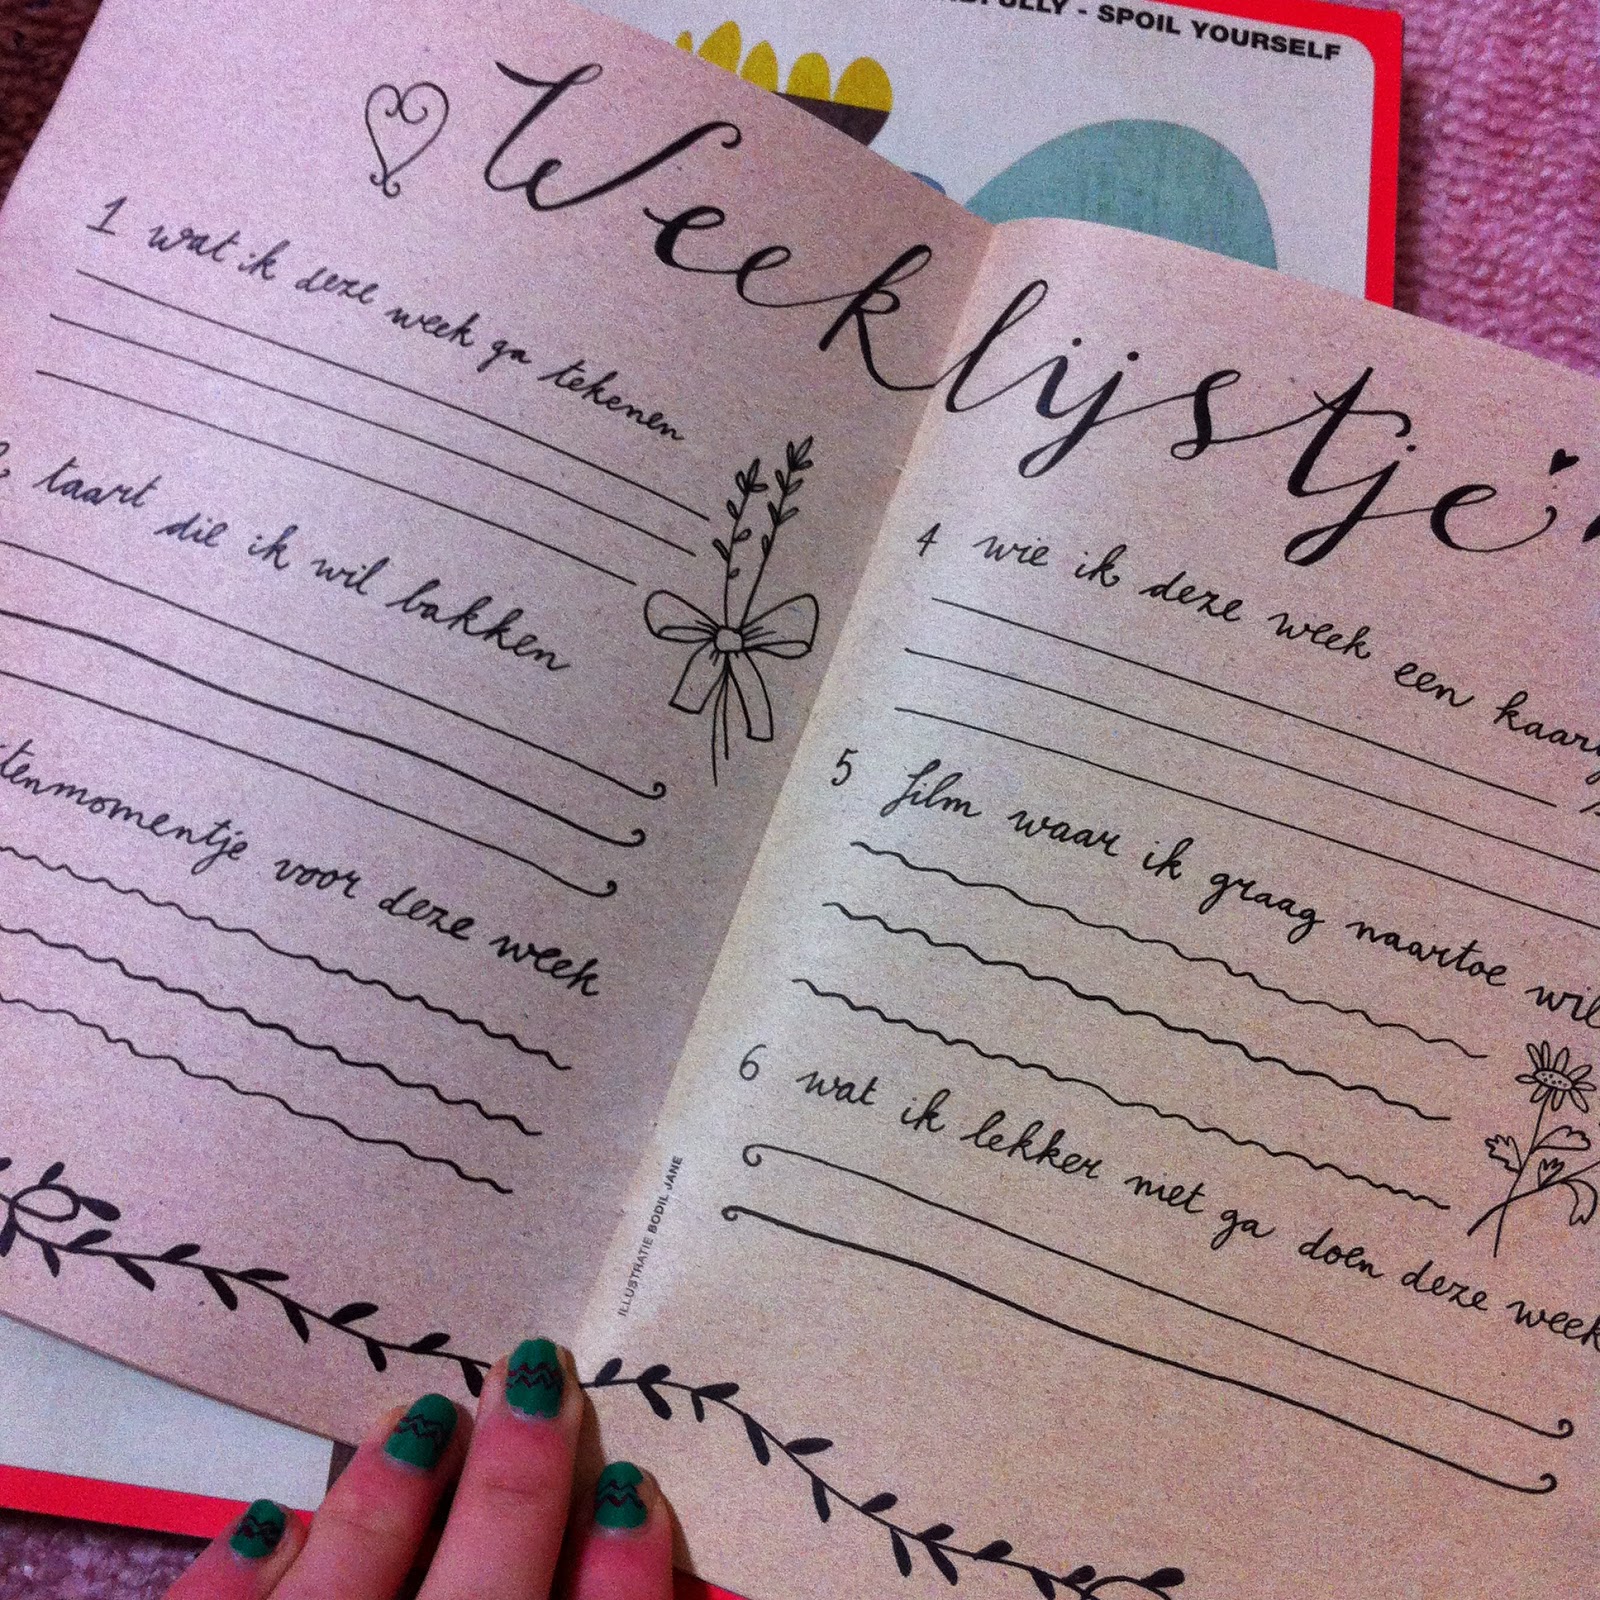 - SPOIL YOURSELF
Weeklijstje
1 wat ik deze week ga tekenen
taart die ik wil bakken
voor deze week
4 wie ik deze week een
5 film waar ik graag naartoe wil
6 wat ik lekker niet ga doen deze week
ILLUSTRATIE BODIL JANE